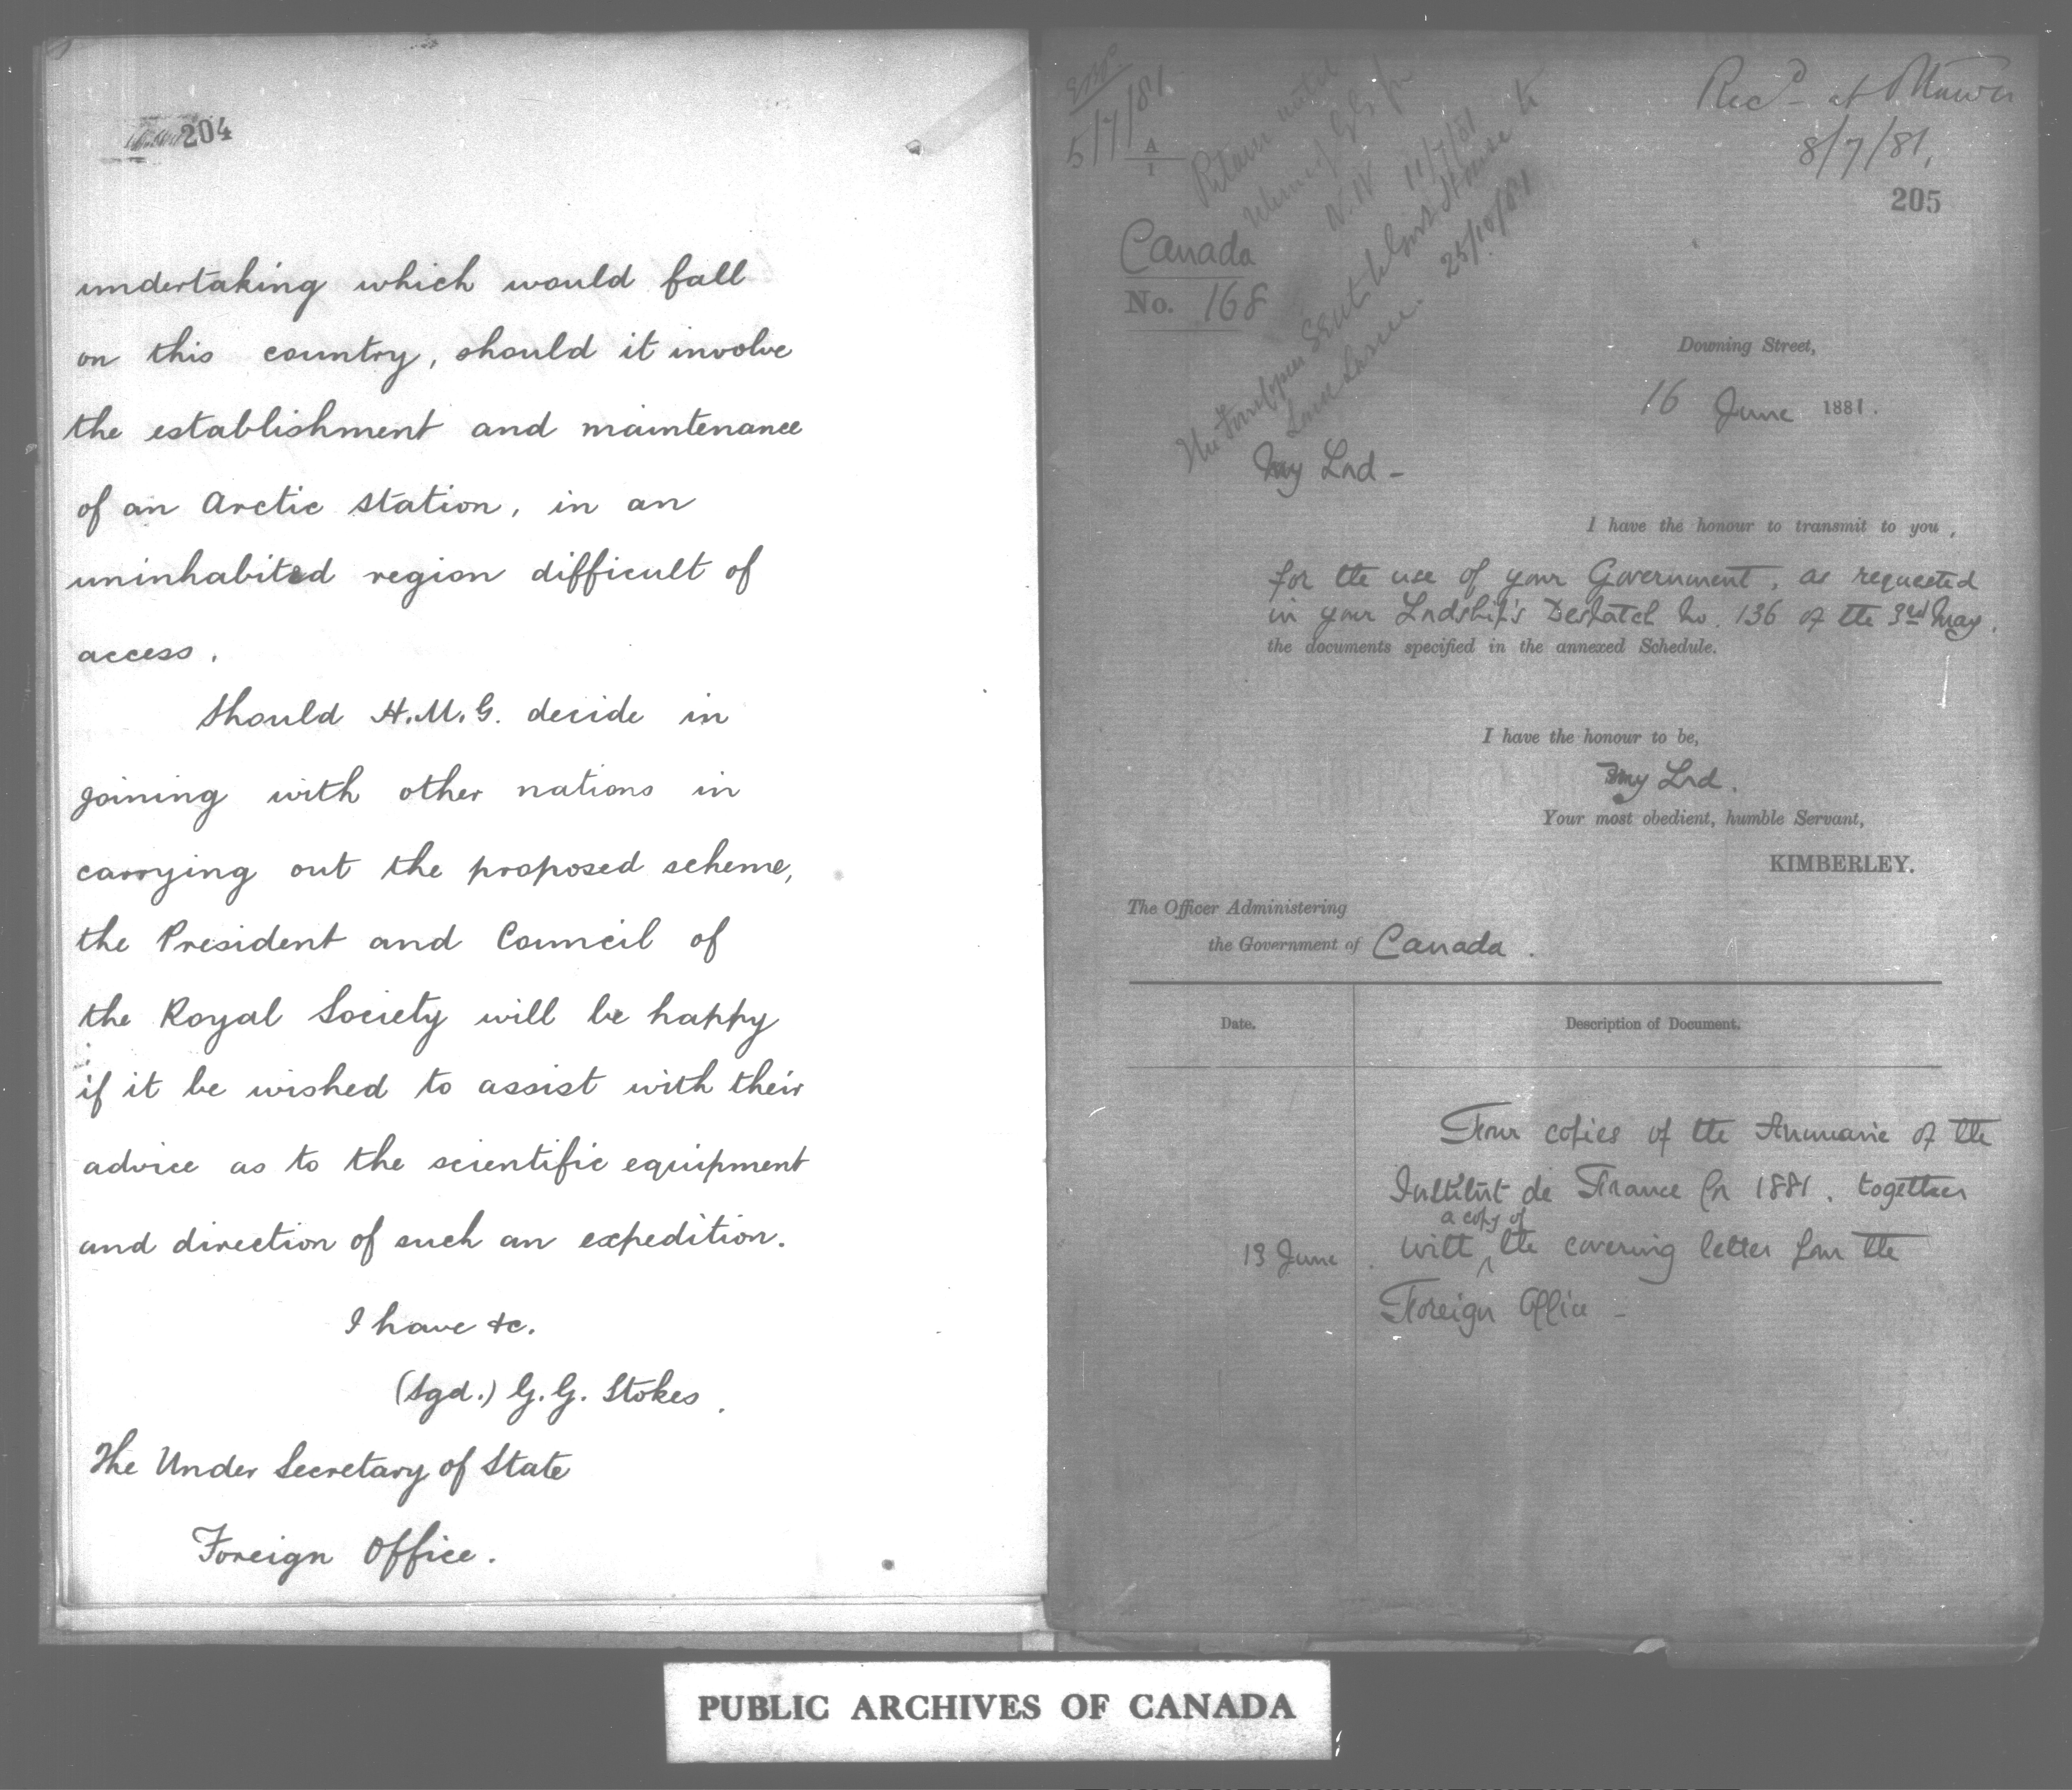 204
undertaking which would fall
on this country, should it involve
the establishment and maintenance
of an Arctic station, in an
uninhabited region difficult of
access.
Should H.M.G. decide in
joining with other nations in
carrying out the proposed scheme,
the President and Council of
the Royal Society will be happy
if it be wished to assist with their
advice as to the scientific equipment
and direction of such an expedition.
I have &c.
(Sgd.) G. G. Stokes.
The Under Secretary of State
Foreign Office.
5/7/81
A
1
11/7/81
25/10/81
Recd at Ottawa
8/7/81.
205
Canada
No. 168
Downing Street,
16 June 1881.
My Lord -
I have the honour to transmit to you,
for the use of your Government, as requested
in your Lordship's Despatch No. 136 of the 3rd May,
the documents specified in the annexed Schedule.
I have the honour to be,
My Lord.
Your most obedient, humble Servant,
KIMBERLEY.
The Officer Administering
the Government of Canada.
Date.
Description of Document.
Four copies of the Annuaire of the
Institut de France for 1881. together
a copy of
13 June with ^ the covering letter from the
Foreign Office -
PUBLIC ARCHIVES OF CANADA